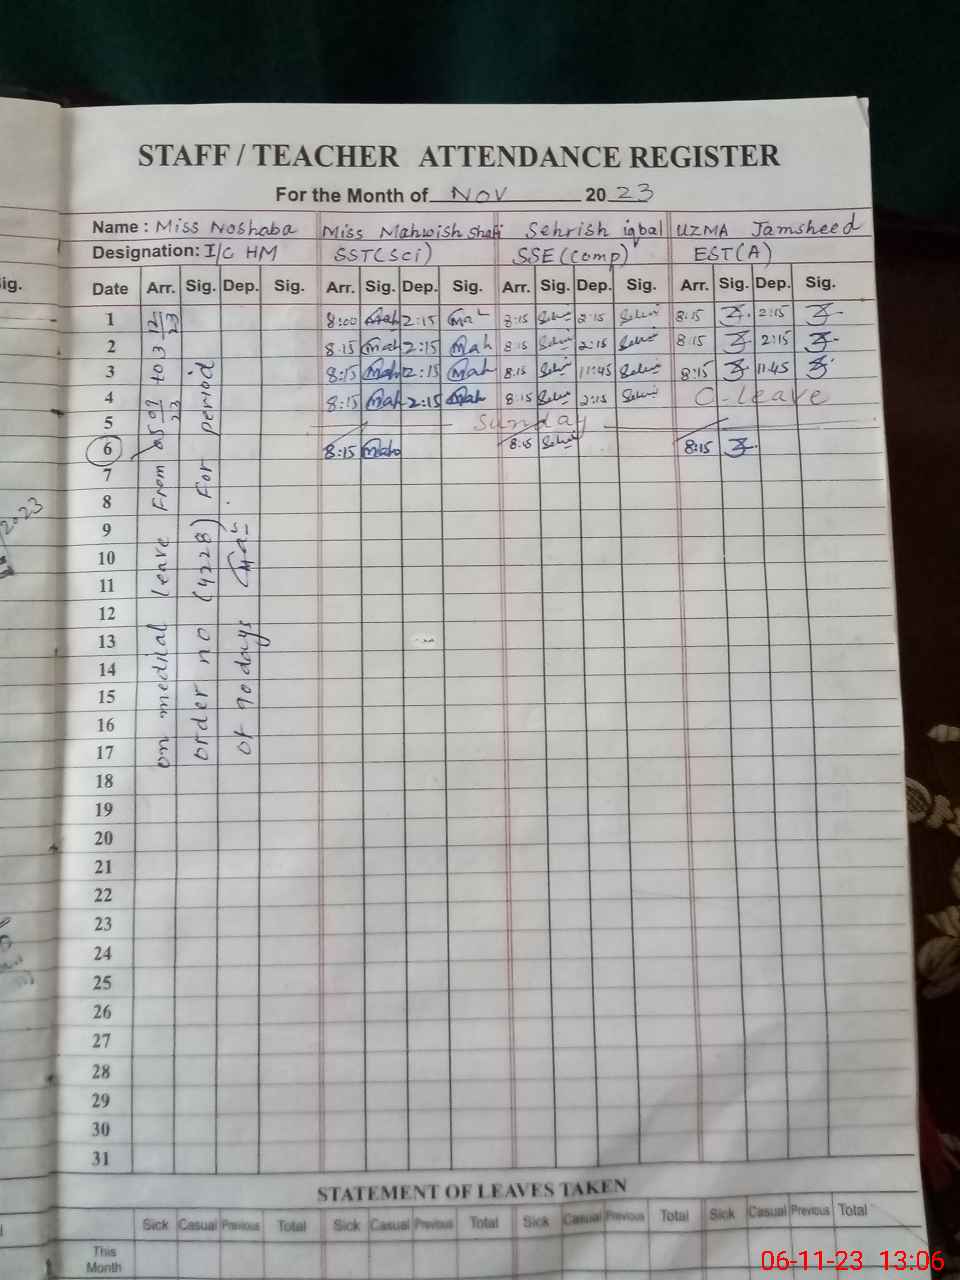 STAFF / TEACHER ATTENDANCE REGISTER
For the Month of NOV 20 23
Name : Miss Noshaba Miss Mahwish Shafi Sehrish iqbal UZMA Jamsheed
Designation: I/C HM SST(Sci) SSE(comp) EST(A)
Date Arr. Sig. Dep. Sig. Arr. Sig. Dep. Sig. Arr. Sig. Dep. Sig. Arr. Sig. Dep. Sig.
1 8:00 Mah 2:15 Mah 8:15 2:15 8:15 2:15
2 8:15 Mah 2:15 Mah 8:15 2:15 8:15 2:15
3 8:15 Mah 2:15 Mah 8:15 11:45 8:15 11:45
4 8:15 Mah 2:15 Mah 8:15 2:15 C-leave
5 Sunday
6 8:15 Mah 8:15 8:15
7
8
9
10
11
12
13
14
15
16
17
18
19
20
21
22
23
24
25
26
27
28
29
30
31
on medical leave From to 3 12/23
order no (4228) For period
of 90 days
STATEMENT OF LEAVES TAKEN
Sick Casual Previous Total Sick Casual Previous Total Sick Casual Previous Total Sick Casual Previous Total
This
Month
ig.
2023
06-11-23 13:06